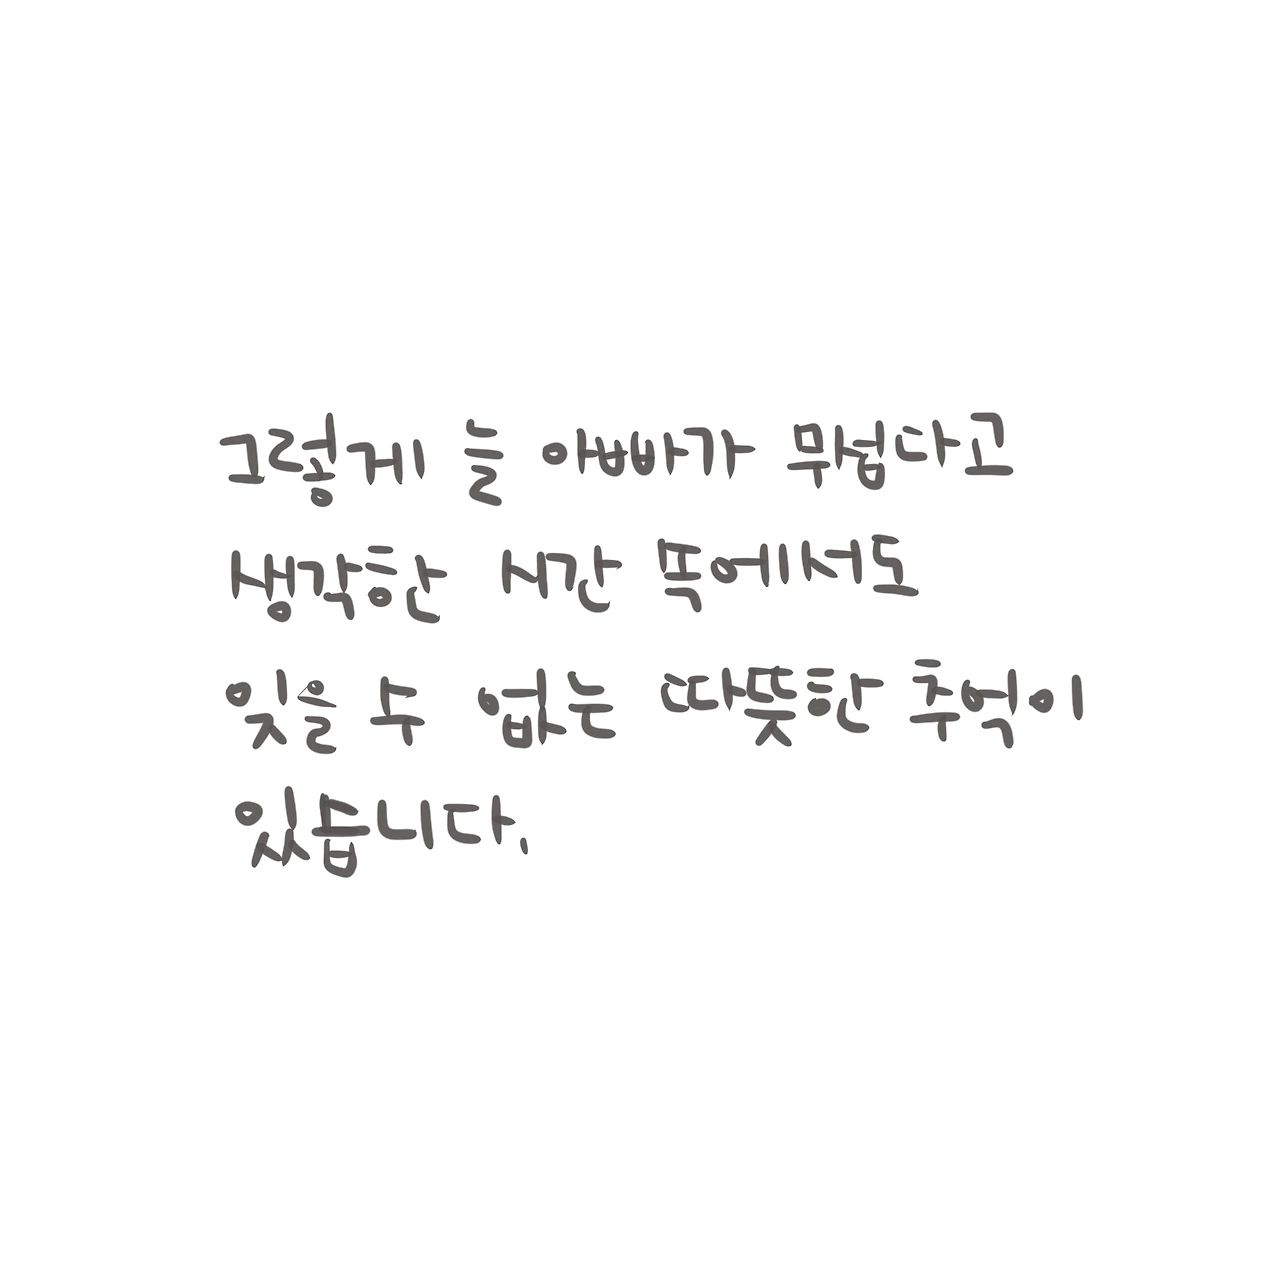 그렇게 늘 아빠가 무섭다고
생각한 시간 쏙에서도
잊을 수 없는 따뜻한 추억이
있습니다.